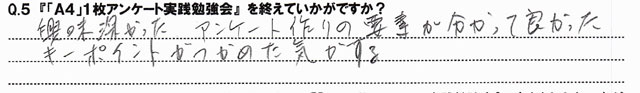 Q.5 『「A4」1枚アンケート実践勉強会』を終えていかがですか？
興味深かった アンケート作りの要素が分かって良かった
キーポイントがつかめた気がする